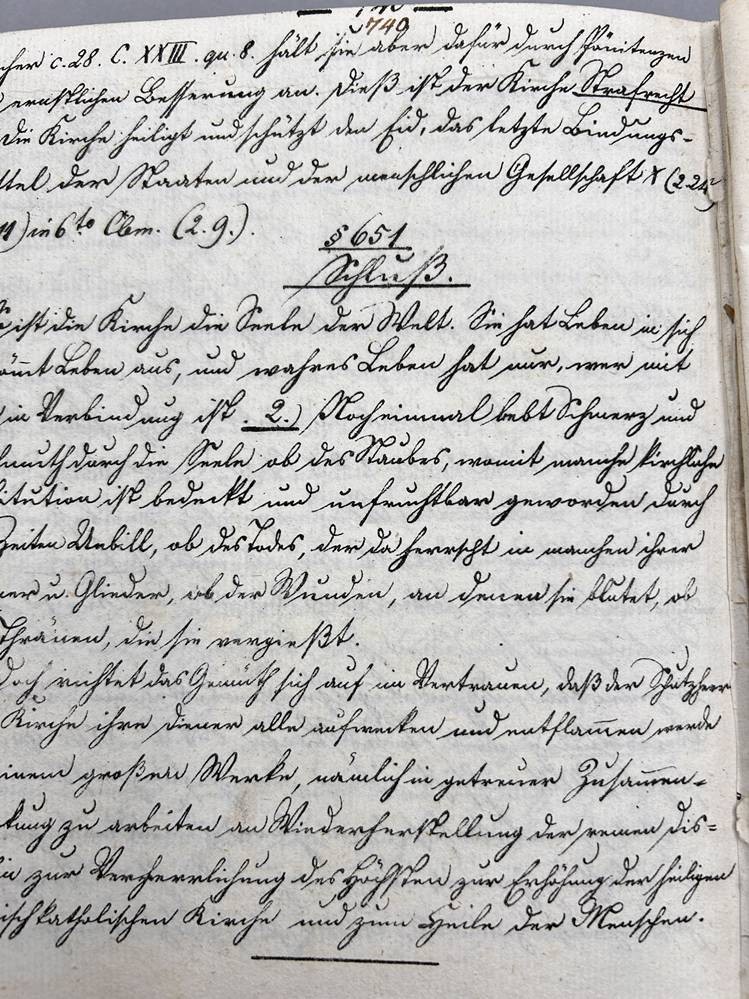 740
cher c. 28. C. XXIII. qu. 8. hält sie aber dafür durch Pönitenzen
ernstlichen Besserung an. Dieß ist der Kirche Strafrecht
Die Kirche heiligt und schützt den Eid, das letzte Bindungs-
ttel der Staaten und der menschlichen Gesellschaft X (2.24
11) in 6to Clem. (2.9.).
§ 651
Schluß.
ist die Kirche die Seele der Welt. Sie hat Leben in sich
ömt Leben aus, und wahres Leben hat nur, wer mit
in Verbindung ist. 2.) Noch einmal bebt Schmerz und
hmuth durch die Seele ob des Staubes, womit manche kirchliche
titution ist bedeckt und unfruchtbar geworden durch
Zeiten Unbill, ob des Todes, der da herrscht in manchen ihrer
ner u. Glieder, ob der Wunden, an denen sie blutet, ob
Thränen, die sie vergießt.
doch richtet das Gemüth sich auf im Vertrauen, daß der Schutzherr
Kirche ihre Diener alle aufwecken und entflam̅en werde
einem großen Werke, nämlich in getreuer Zusam̅en-
kung zu arbeiten an Wiederherstellung der reinen Dis-
in zur Verherrlichung des Höchsten zur Erhöhung der heiligen
isch katholischen Kirche und zum Heile der Menschen.